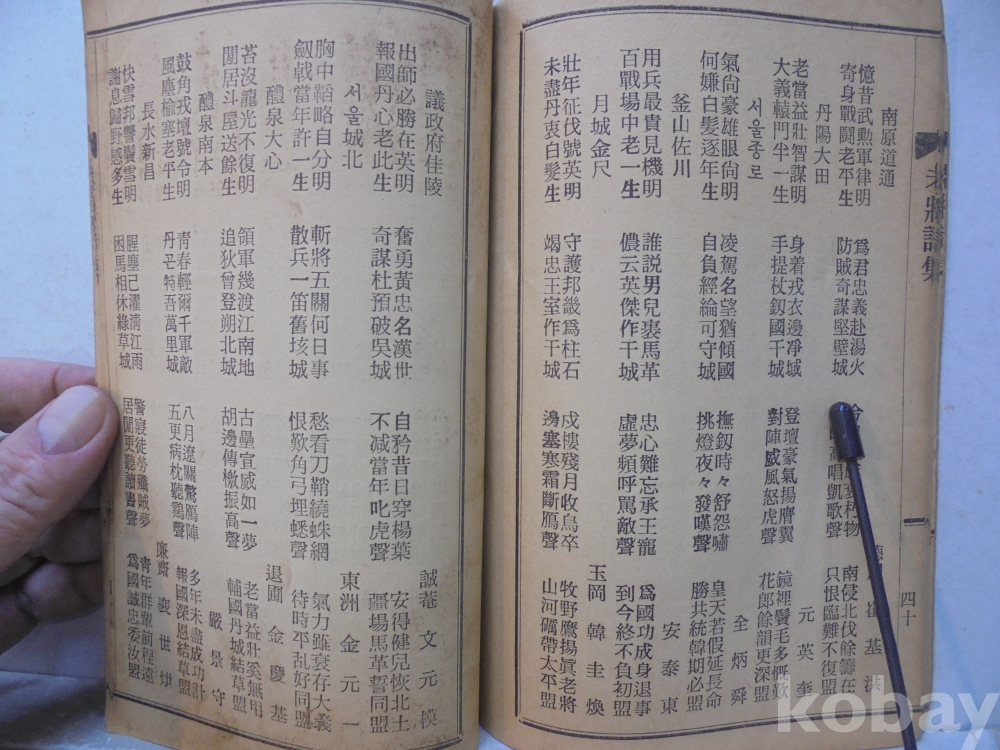 老將詩集
四十
南原道通 崔基洪
憶昔武勲軍律明 爲君忠義赴湯火 杯物 南侵北伐餘籌在
寄身戰鬪老平生 防賊奇謀堅壁城 高唱凱歌聲 只恨臨難不復盟
丹陽大田 元英奎
老當益壯智謀明 身着戎衣邊淨域 登壇豪氣揚膺翼 鏡裡鬢毛多慨歎
大義轅門半一生 手提杖釼國干城 對陣威風怒虎聲 花郎餘韻更深盟
서울종로 全炳舜
氣尙豪雄眼尙明 凌駕名望猶傾國 撫釼時々舒怨嘯 皇天若假延長命
何嫌白髮逐年生 自負經綸可守城 挑燈夜々發嘆聲 勝共統韓期必盟
釜山佐川 安泰東
用兵最貴見機明 誰説男兒裹馬革 忠心難忘承王寵 爲國功成身退事
百戰場中老一生 儂云英傑作干城 虛夢頻呼罵敵聲 到今終不負初盟
月城金尺 玉岡 韓圭煥
壯年征伐號英明 守護邦畿爲柱石 戍樓殘月收烏卒 牧野鷹揚眞老將
未盡丹衷白髮生 竭忠王室作干城 邊塞寒霜斷鴈聲 山河礪帶太平盟
議政府佳陵 誠菴 文元模
出師必勝在英明 奮勇黃忠名漢世 自矜昔日穿楊葉 安得健兒恢北土
報國丹心老此生 奇謀杜預破吳城 不减當年叱虎聲 疆場馬革誓同盟
서울城北 東洲 金元一
胸中韜略自分明 斬將五關何日事 愁看刀鞘繞蛛網 氣力雖衰存大義
劔戟當年許一生 散兵一笛舊垓城 恨歎角弓埋蟋聲 待時平乱好同盟
醴泉大心 退圃 金慶基
苔沒龍光不復明 領軍幾渡江南地 古壘宣威如一夢 老當益壯奚無用
閑居斗屋送餘生 追狄曾登朔北城 胡邊傳檄振高聲 輔國丹城結草盟
醴泉南本 嚴景守
鼓角戎壇號令明 青春輕爾千軍敵 八月遼關驚鴈陣 多年未盡成功計
風塵楡塞老平生 丹心特吾萬里城 五更病枕聽鷄聲 報國深恩結草盟
長水新昌 廉齋 裵世烘
快雪邦讐鬢雪明 腥塵已濯淸江雨 警寢徒勞殲賊夢 青年群輩前程遠
謝息歸野感多生 困馬相休綠草城 居閒更聽讀書聲 爲國誠忠委汝盟
kobay